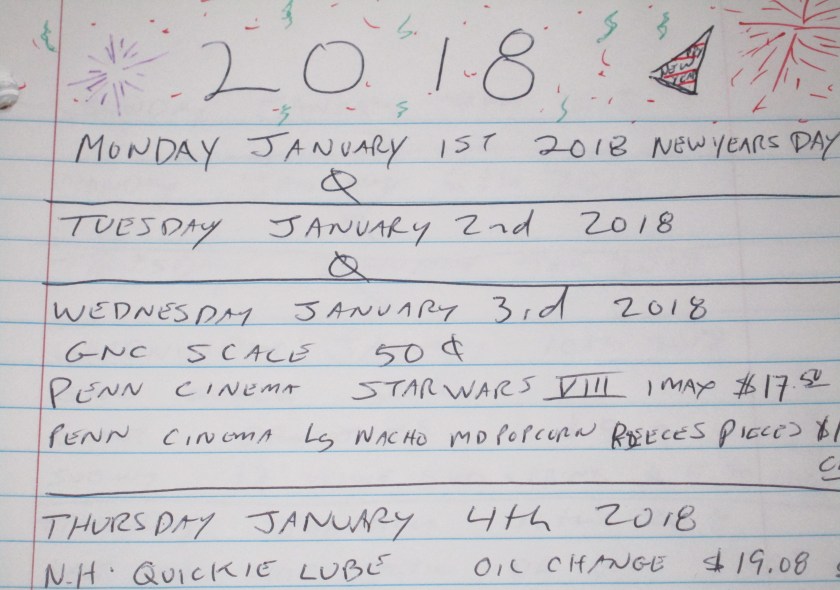 2018
NEW YEAR
MONDAY JANUARY 1ST 2018 NEW YEARS DAY
Ø
TUESDAY JANUARY 2nd 2018
Ø
WEDNESDAY JANUARY 3rd 2018
GNC SCALE 50¢
PENN CINEMA STARWARS VIII IMAX $17.50
PENN CINEMA LG NACHO MD POPCORN REECES PIECES $1
THURSDAY JANUARY 4th 2018
N.H. QUICKIE LUBE OIL CHANGE $19.08